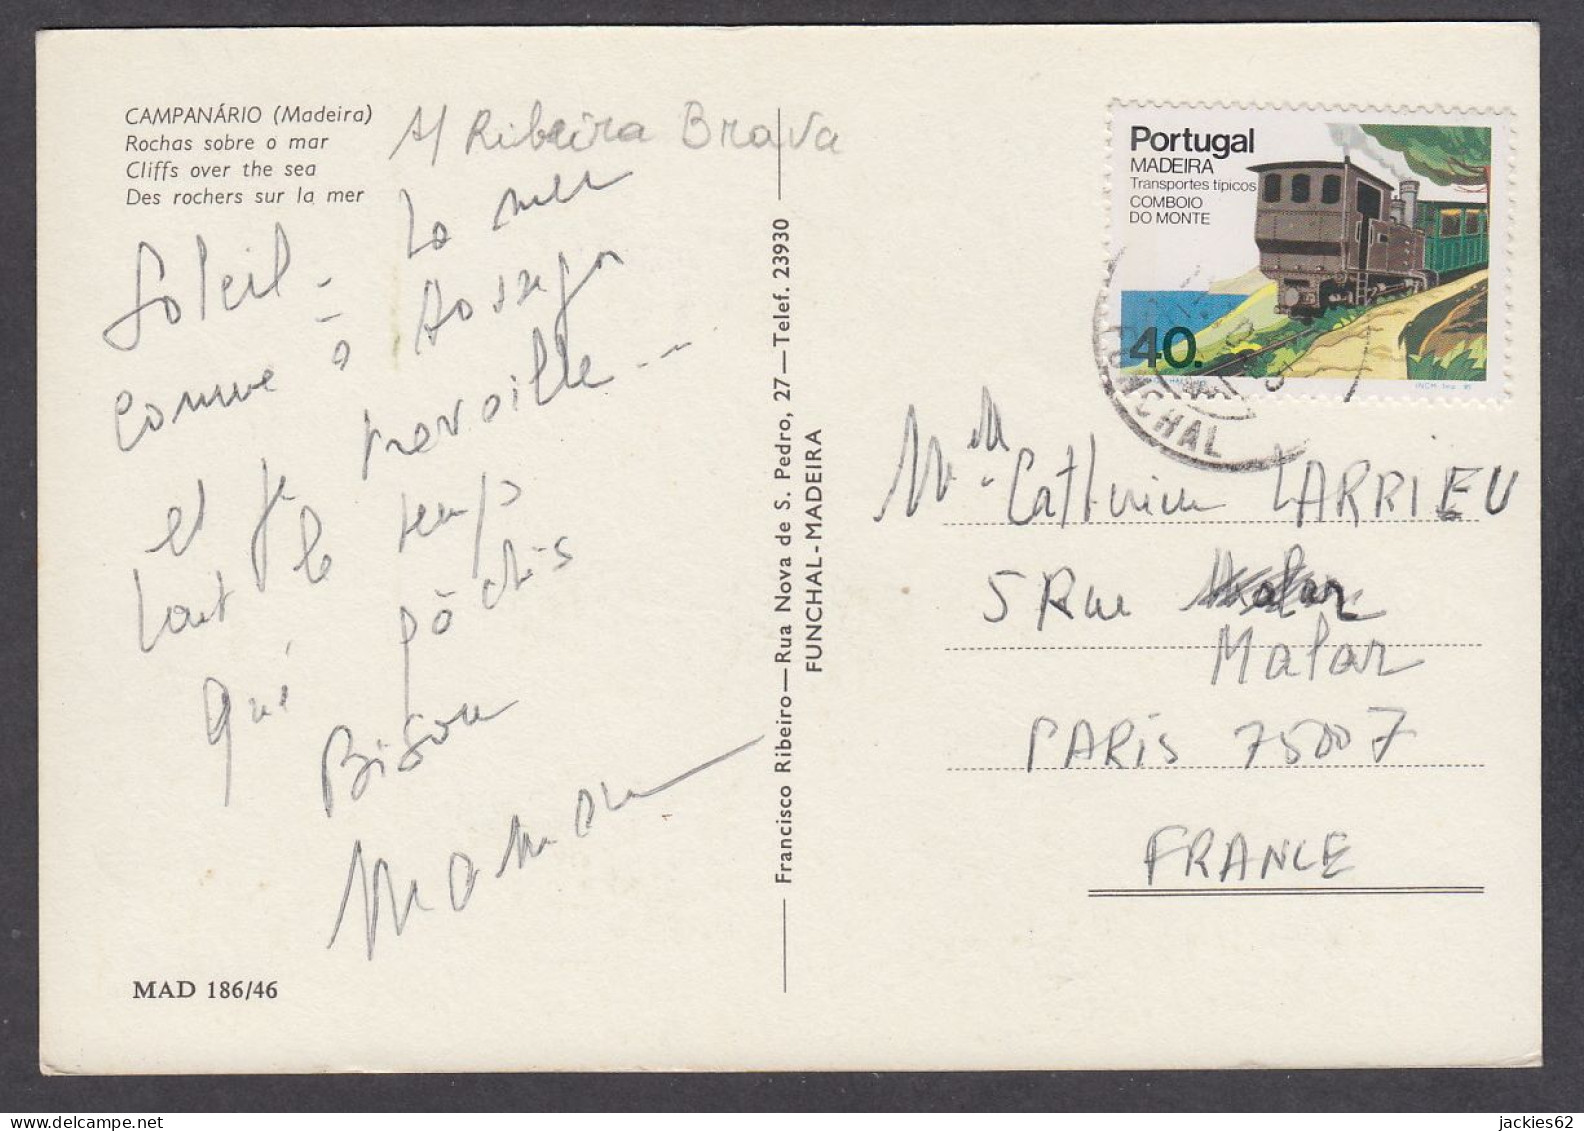 CAMPANÁRIO (Madeira)
Rochas sobre o mar
Cliffs over the sea
Des rochers sur la mer
A/ Ribeira Brava
Soleil - La mer
comme à
et je travaille --
tout le temps
qui
Bisou
Maman
MAD 186/46
Francisco Ribeiro—Rua Nova de S. Pedro, 27—Telef. 23930
FUNCHAL-MADEIRA
Portugal
MADEIRA
Transportes típicos
COMBOIO
DO MONTE
40.
INCM
FUNCHAL
Mlle Catherine LARRIEU
5 Rue Malar
Malar
PARIS 75007
FRANCE
jackies62